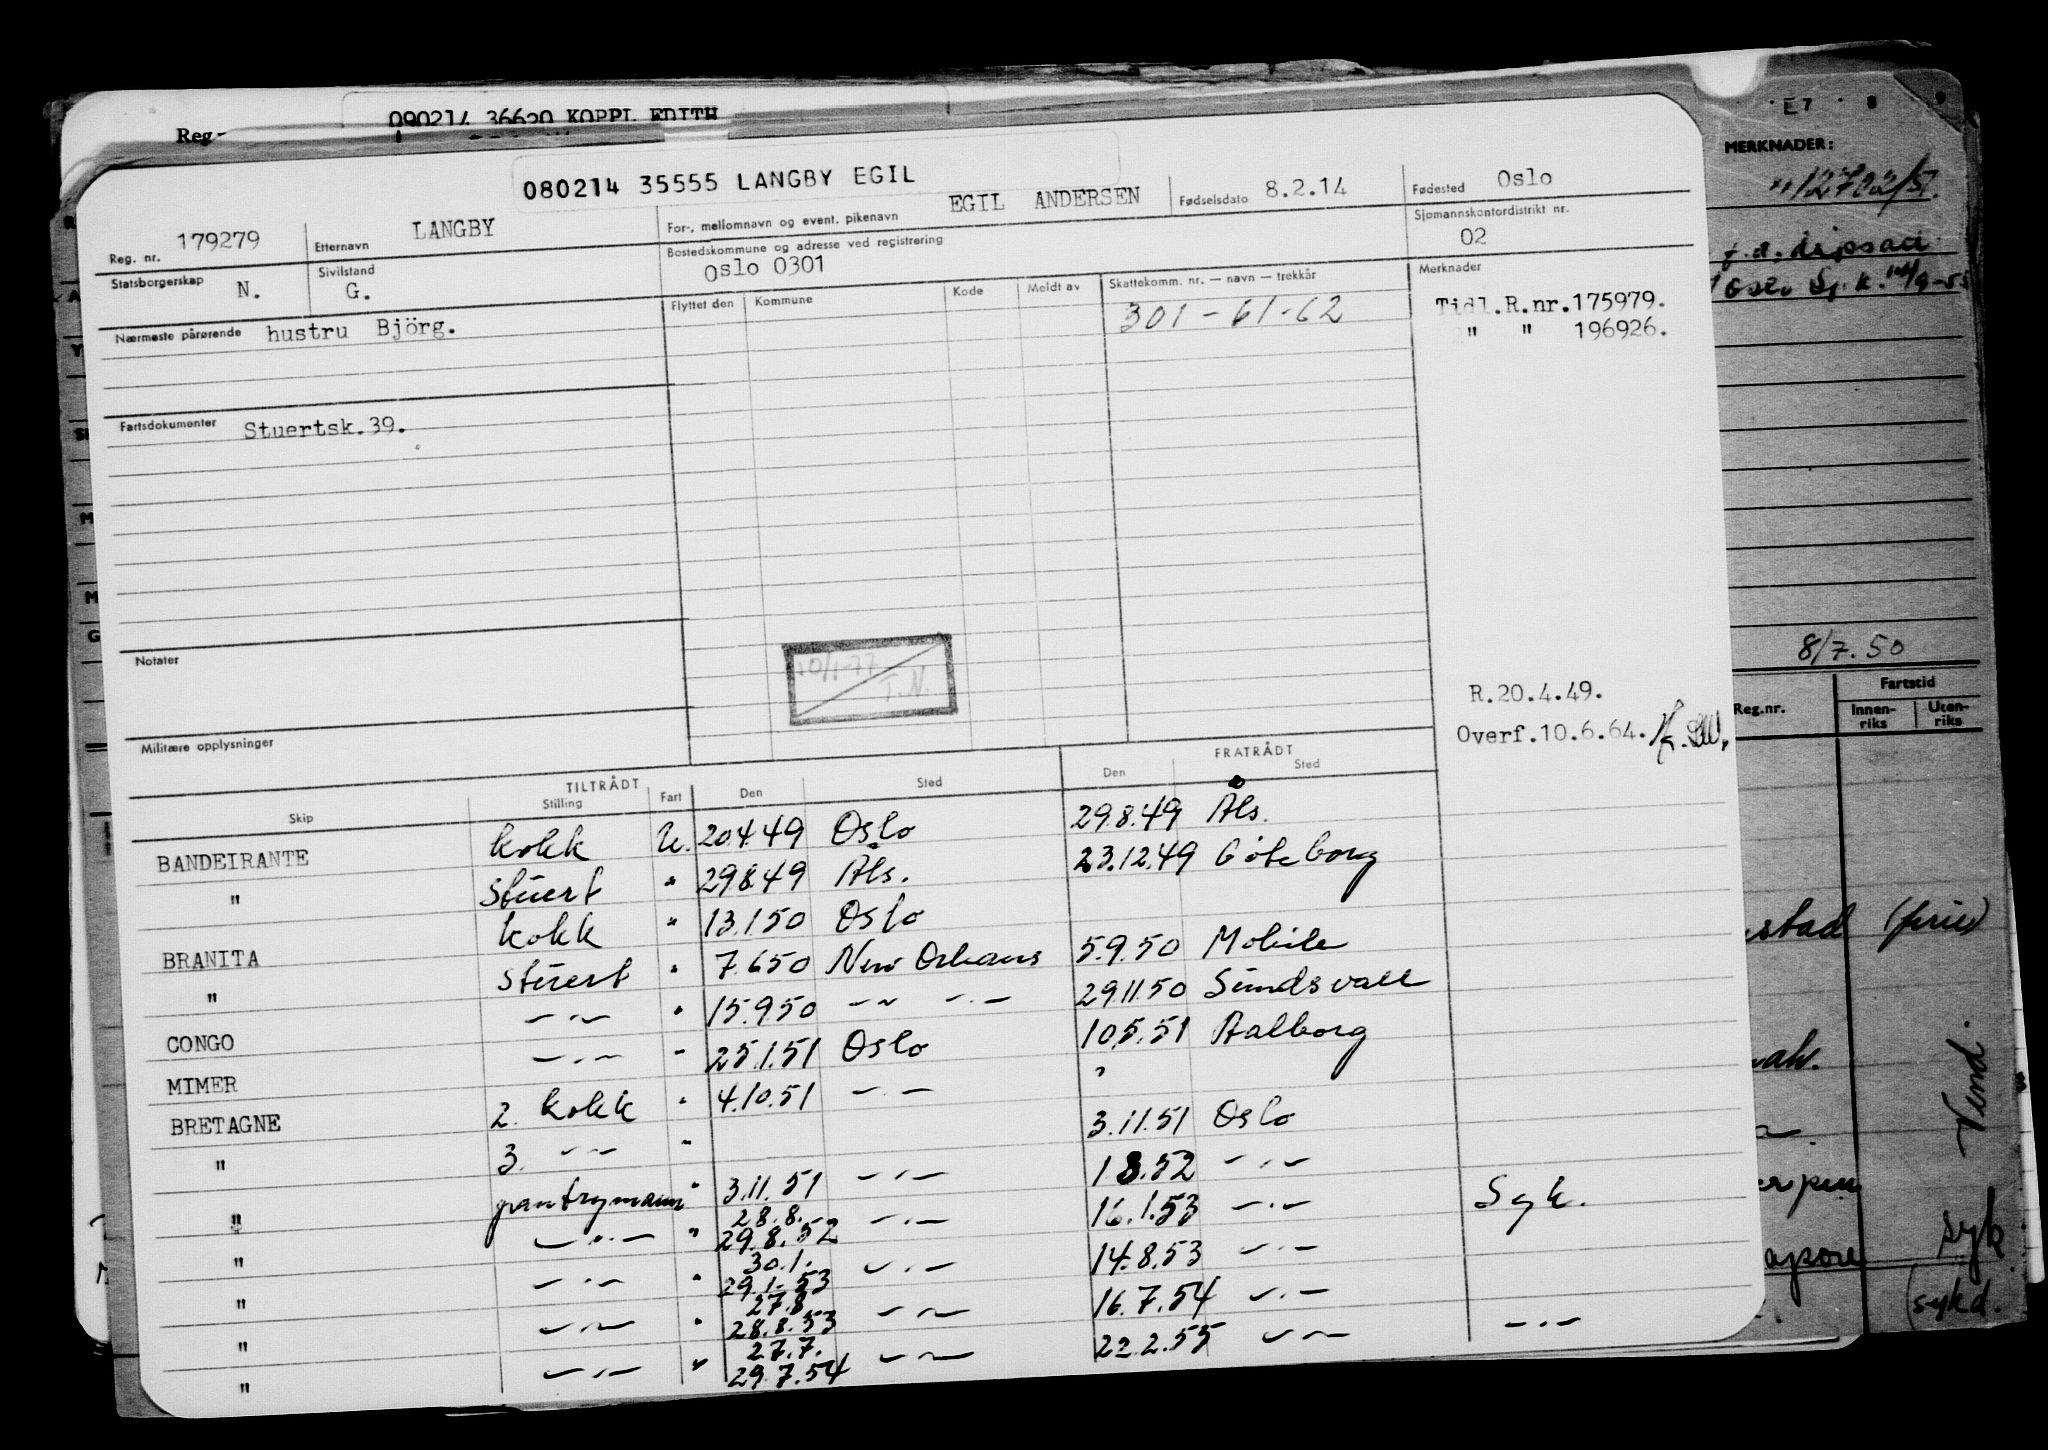 090214 36620 KOPPL EDITH
Reg
E7 8 9
MERKNADER:
080214 35555 LANGBY EGIL
Reg. nr. 179279 Etternavn LANGBY For-, mellomnavn og event. pikenavn EGIL ANDERSEN Fødselsdato 8.2.14 Fødested Oslo
Statsborgerskap N. Sivilstand G. Bostedskommune og adresse ved registrering Oslo 0301 Sjømannskontordistrikt nr. 02
Nærmeste pårørende hustru Björg. Flyttet den Kommune Kode Meldt av Skattekomm. nr. — navn — trekkår Merknader
301 - 61-62 Tidl.R.nr.175979.
" " 196926.
Fartsdokumenter Stuertsk.39.
Notater
10/1-77 T.N.
8/7.50
R.20.4.49.
Overf.10.6.64.
Militære opplysninger
Reg.nr. Fartstid
Innen-riks Uten-riks
TILTRÅDT FRATRÅDT
Skip Stilling Fart Den Sted Den Sted
BANDEIRANTE kokk U. 20.4.49 Oslo 29.8.49 Åls.
" Stuert " 29.8.49 Åls. 23.12.49 Göteborg
BRANITA kokk " 13.1.50 Oslo
" Stuert " 7.6.50 New Orleans 5.9.50 Mobile
CONGO — " — " 15.9.50 — " — — " — 29.11.50 Sundsvall
MIMER — " — " 25.1.51 Oslo 10.5.51 Aalborg
BRETAGNE 2. kokk " 4.10.51 — " — "
" 3. — " — " 3.11.51 Oslo
" pantrymann " 3.11.51 — " — 1 8.52 — " —
" — " — " 28.8. 29.8.52 — " — 16.1.53 — " — Syk.
" — " — " 30.1. 29.1.53 — " — 14.8.53 — " —
" — " — " 27.8. 28.8.53 — " — 16.7.54 — " —
" — " — " 27.7. 29.7.54 — " — 22.2.55 — " — — " —
syk
(sykd.